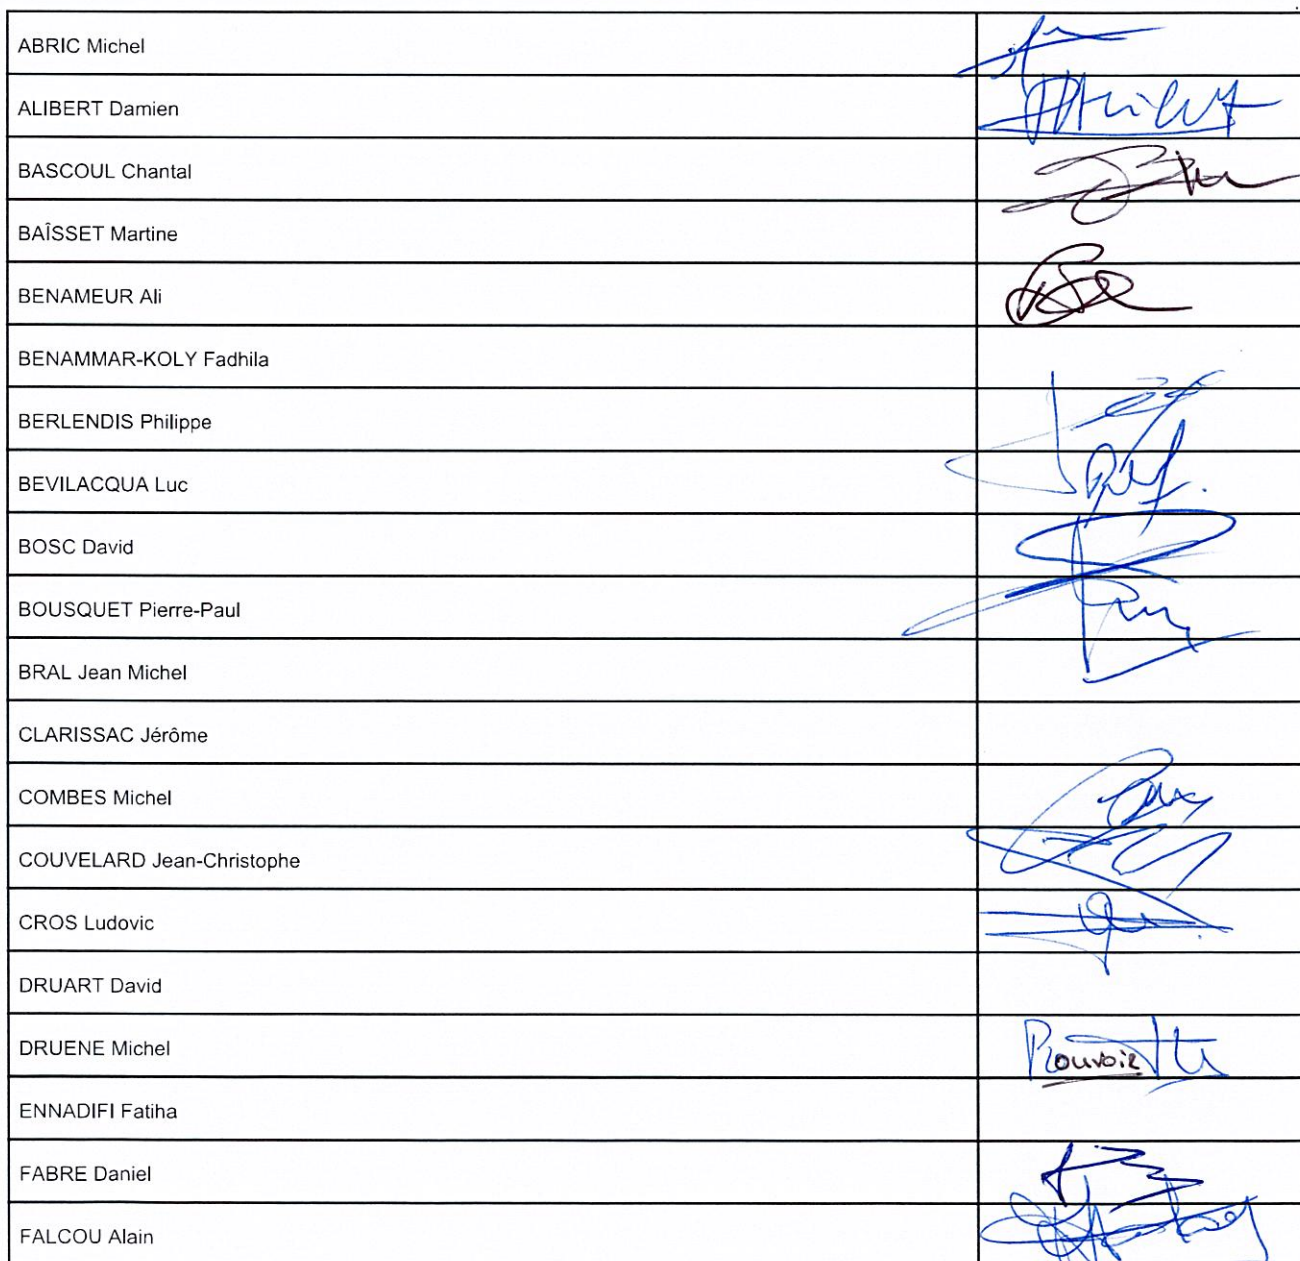 ABRIC Michel
ALIBERT Damien
BASCOUL Chantal
BAÎSSET Martine
BENAMEUR Ali
BENAMMAR-KOLY Fadhila
BERLENDIS Philippe
BEVILACQUA Luc
BOSC David
BOUSQUET Pierre-Paul
BRAL Jean Michel
CLARISSAC Jérôme
COMBES Michel
COUVELARD Jean-Christophe
CROS Ludovic
DRUART David
DRUENE Michel
Pouvoir
ENNADIFI Fatiha
FABRE Daniel
FALCOU Alain